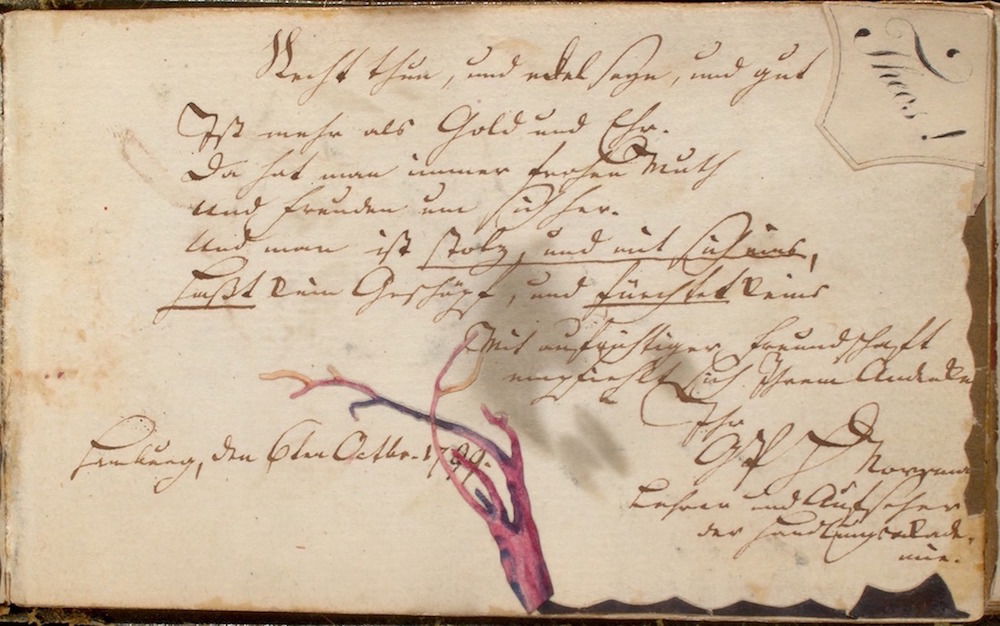 Recht thun, und edel seyn, und gut
Ist mehr als Gold und Ehr.
Da hat man immer frohen Muth
Und Freuden um sich her.
Und man ist stolz, und mit sich eins,
Haßt kein Geschöpf, und fürchtet keins
Mit aufrichtiger Freundschaft
empfiehlt sich Ihrem Andenken
Ihr
Hamburg, den 6ten Octbr. 1799.
Lehrer und Aufseher
der Handlungsakade-
mie.
Theos!